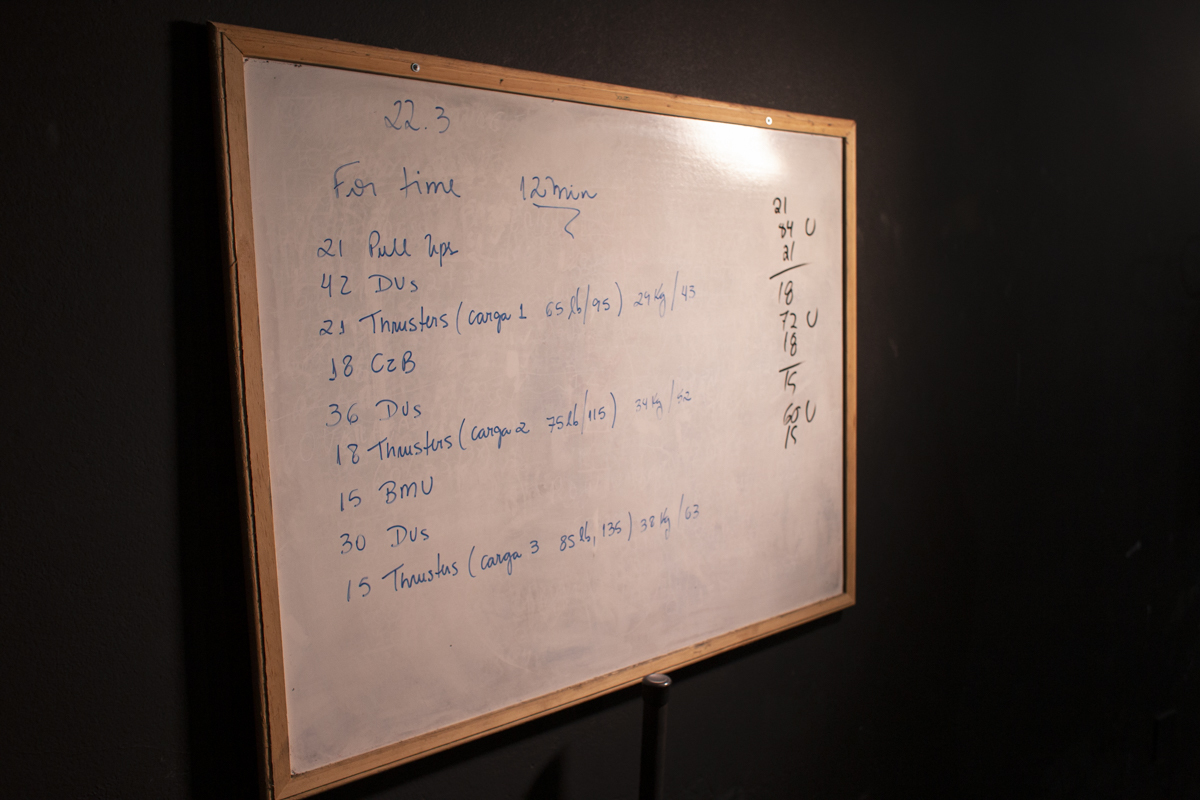 22.3
For time 12 min
21 Pull Ups
42 DUs
21 Thrusters (carga 1 65 lb/95) 29 Kg/43
18 C2B
36 DUs
18 Thrusters (carga 2 75 lb/115) 34 Kg/52
15 BMU
30 DUs
15 Thrusters (carga 3 85 lb, 135) 38 Kg/63
21
84 U
21
18
72 U
18
15
60 U
15